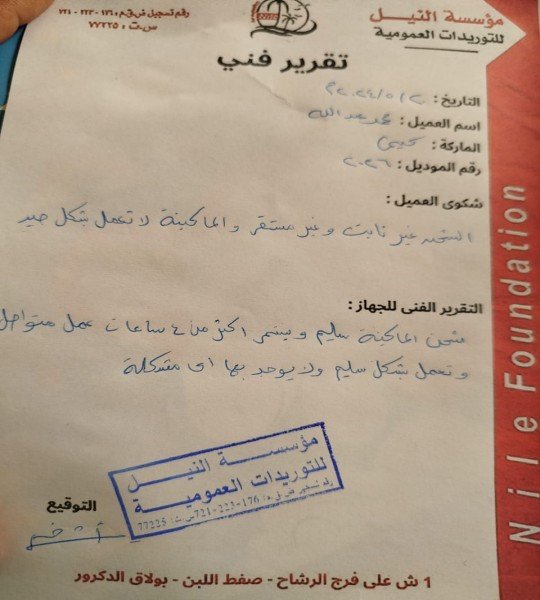 مؤسسة النيل
للتوريدات العمومية
رقم تسجيل ض.ق.م : ١٧٦ - ٢٢٣ - ٧٢١
س.ت : ٧٧٢٢٥
تقرير فني
التاريخ : ٢٠٢٤/٥/٢٠
اسم العميل : محمد عبدالله
الماركة : كيمى
رقم الموديل : ٢٠٢٦
شكوى العميل :
الشحن غير ثابت و غير مستقر و الماكينة لا تعمل بشكل جيد
التقرير الفنى للجهاز :
شحن الماكينة سليم و يستمر اكثر من ٤ ساعات عمل متواصل
و تعمل بشكل سليم ولا يوجد بها اى مشكلة
مؤسسة النيل
للتوريدات العمومية
721-223-176
س.ت: 77225
التوقيع
1 ش على فرج الرشاح - صفط اللبن - بولاق الدكرور
Nile Foundation